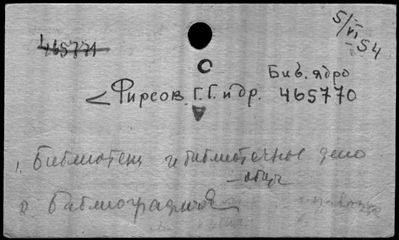 5/VI-54
465771
Биб. ядро
Фирсов Г.Г. и др. 465770
1. Библиотеки и библиотечное дело
- общ.
2. Библиография